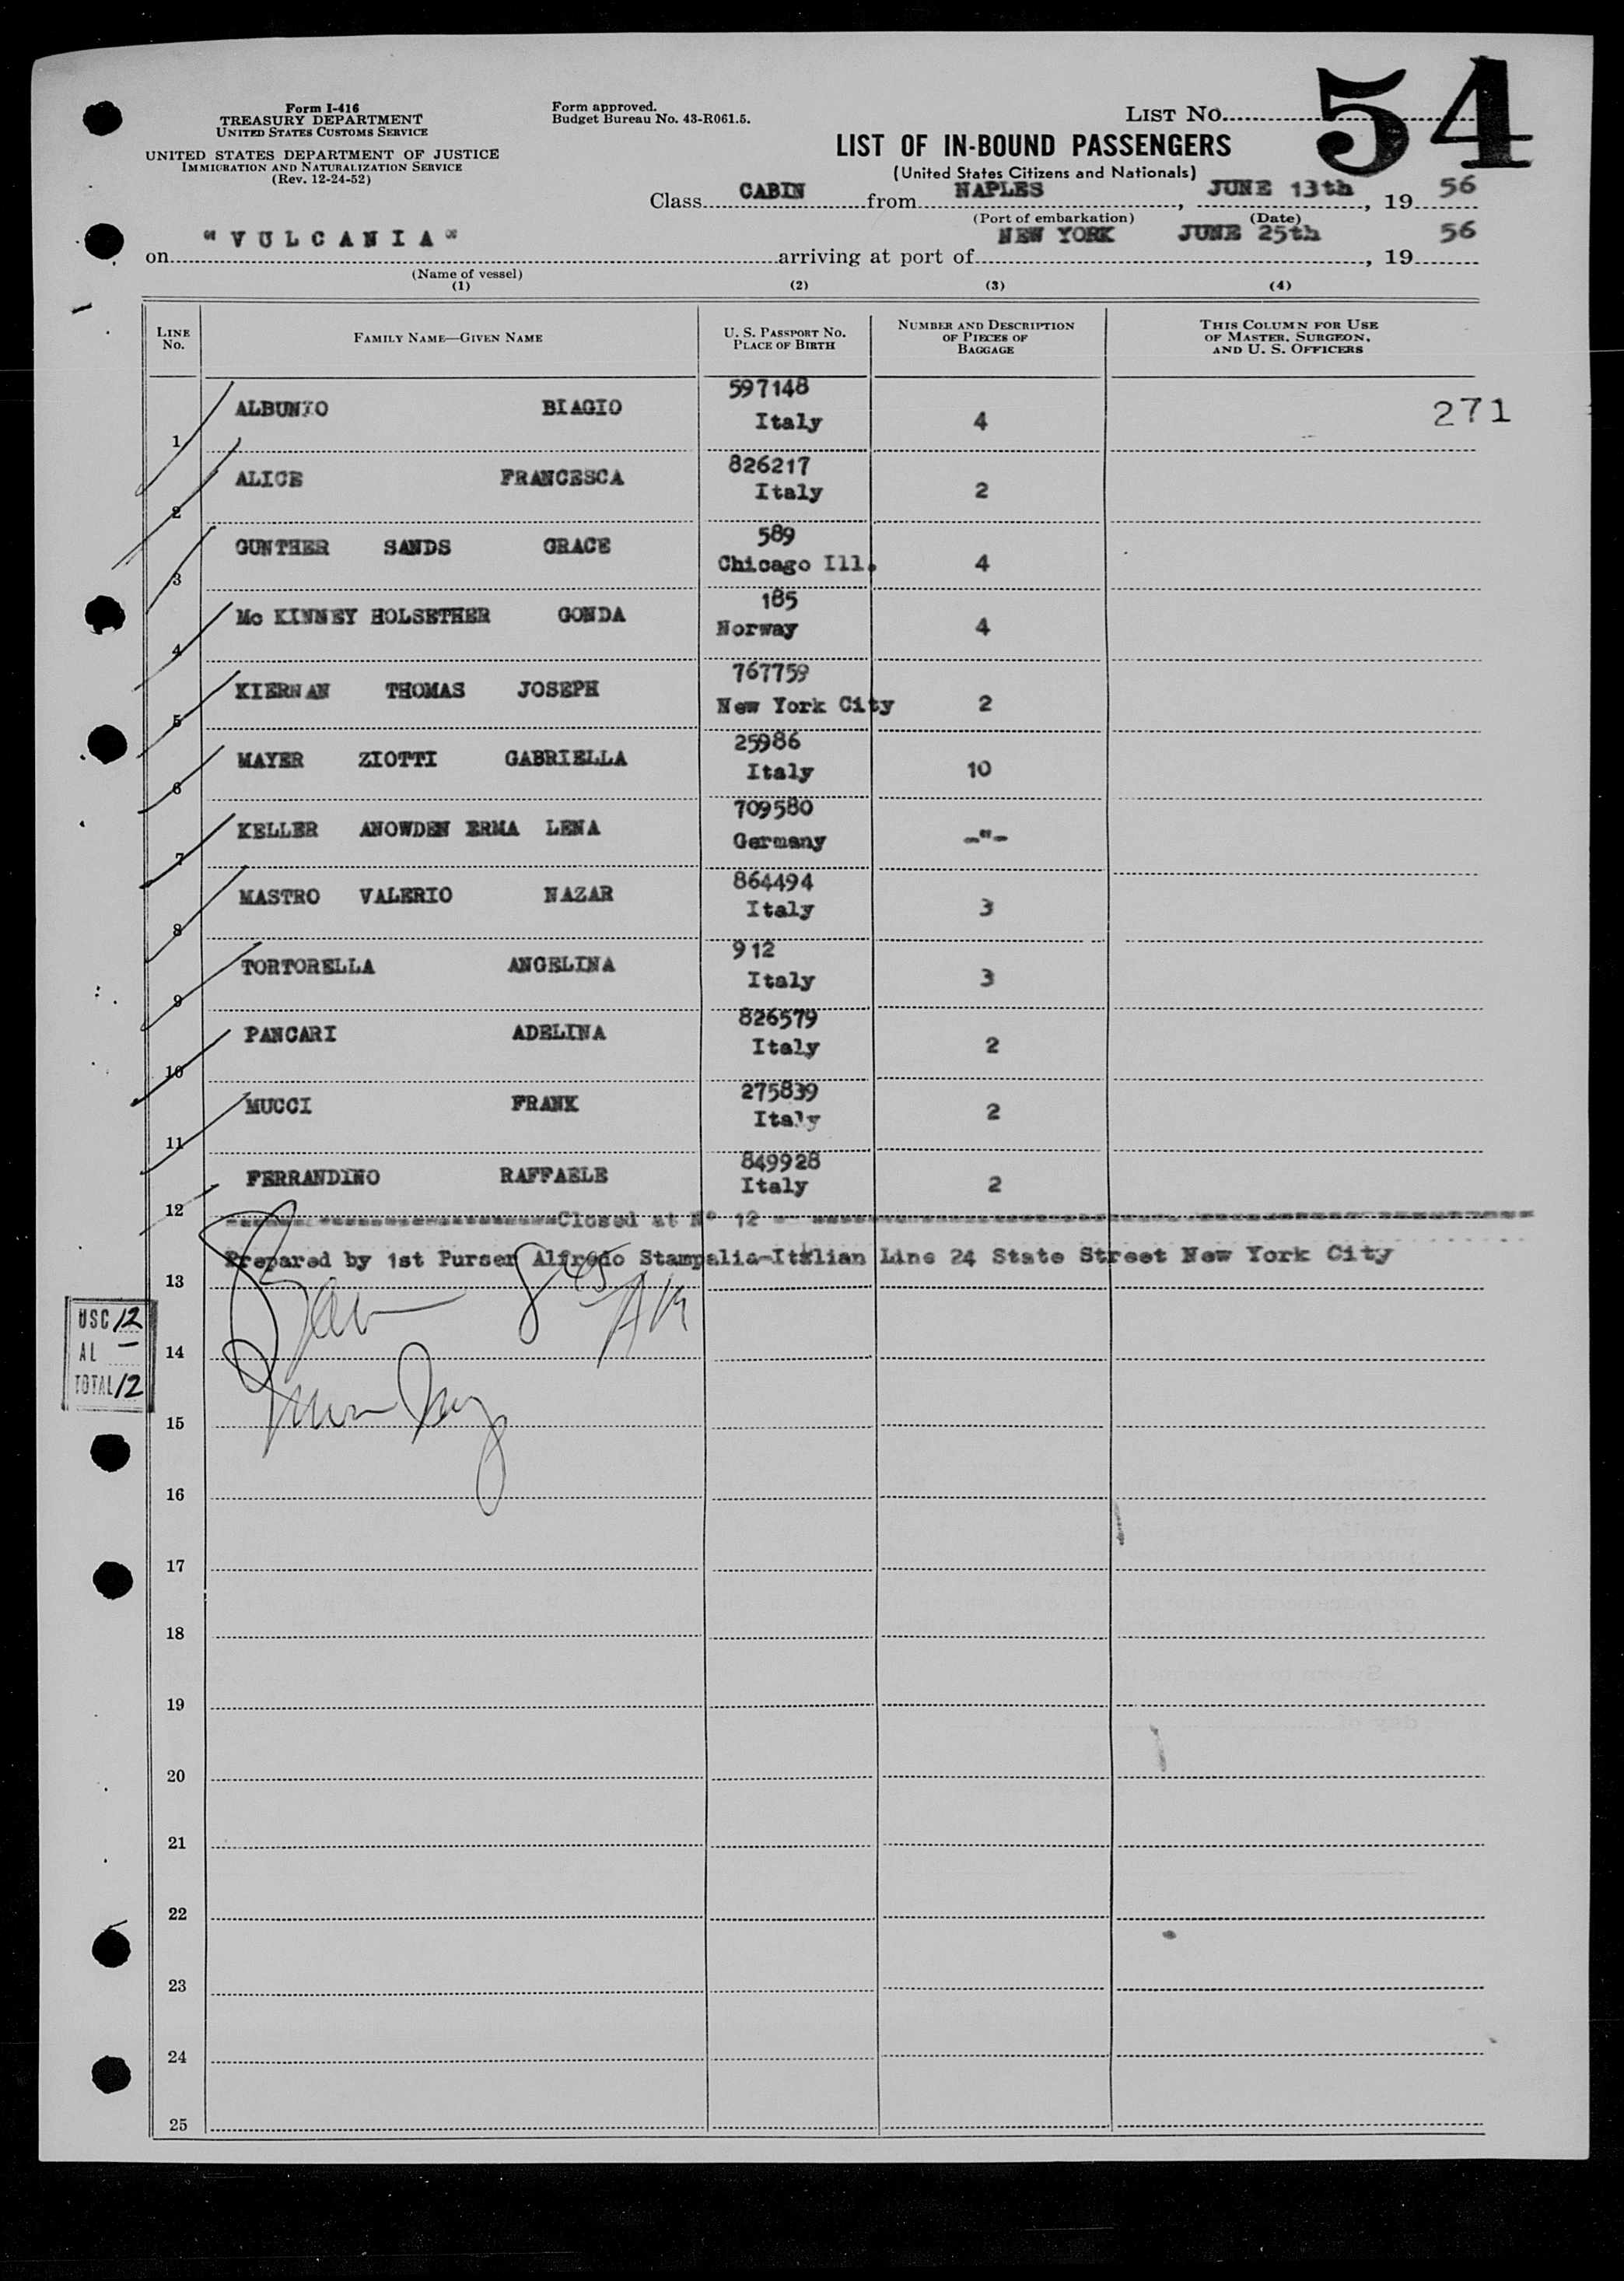 54
Form I-416
TREASURY DEPARTMENT
UNITED STATES CUSTOMS SERVICE
UNITED STATES DEPARTMENT OF JUSTICE
IMMIGRATION AND NATURALIZATION SERVICE
(Rev. 12-24-52)
Form approved.
Budget Bureau No. 43-R061.5.
LIST NO.
LIST OF IN-BOUND PASSENGERS
(United States Citizens and Nationals)
Class CABIN from NAPLES, JUNE 13th, 19 56
(Port of embarkation) (Date)
on "VULCANIA" arriving at port of NEW YORK JUNE 25th, 19 56
(Name of vessel)
(1) (2) (3) (4)
LINE No. FAMILY NAME—GIVEN NAME U. S. PASSPORT No. PLACE OF BIRTH NUMBER AND DESCRIPTION OF PIECES OF BAGGAGE THIS COLUMN FOR USE OF MASTER, SURGEON, AND U. S. OFFICERS
1 ALBUNIO BIAGIO 597148 Italy 4 271
2 ALICE FRANCESCA 826217 Italy 2
3 GUNTHER SANDS GRACE 589 Chicago Ill. 4
4 Mc KINNEY HOLSETHER GONDA 185 Norway 4
5 KIERNAN THOMAS JOSEPH 767759 New York City 2
6 MAYER ZIOTTI GABRIELLA 25986 Italy 10
7 KELLER ANOWDEN ERMA LENA 709580 Germany -"-
8 MASTRO VALERIO NAZAR 864494 Italy 3
9 TORTORELLA ANGELINA 912 Italy 3
10 PANCARI ADELINA 826579 Italy 2
11 MUCCI FRANK 275839 Italy 2
12 FERRANDINO RAFFAELE 849928 Italy 2
Closed at N° 12
Prepared by 1st Purser Alfredo Stampalia-Italian Line 24 State Street New York City
13
USC 12
AL —
TOTAL 12
14
15
16
17
18
19
20
21
22
23
24
25